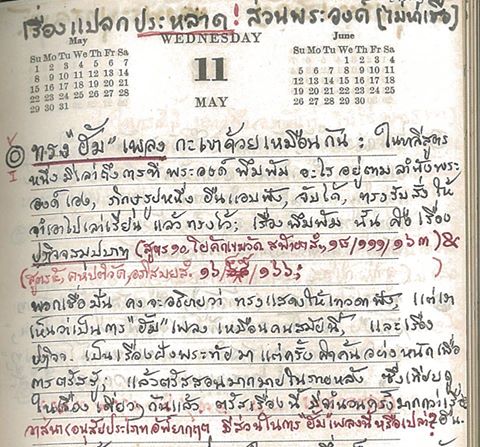 เรื่องแปลกประหลาด! ส่วนพระองค์ (ไม่น่าเชื่อ)
May WEDNESDAY June
Su Mo Tu We Th Fr Sa Su Mo Tu We Th Fr Sa
11
MAY
ทรง "ฮัม" เพลง กะเขาด้วยเหมือนกัน: ในบาลีสูตร
หนึ่ง มีเล่าถึงการที่ พระองค์ พึมพัม อะไร อยู่ตามลำพังพระ
องค์เอง, ภิกษุรูปหนึ่ง ยืนแอบฟัง, จับได้, ทรงรับสั่ง ให้
จำเอาไปเล่าเรียน แล้วทรงไว้; เรื่องพึมพัม นั้น คือ เรื่อง
ปฏิจจสมุปบาท (สูตร ๑๐, โยคักเขมวัค, สฬา.สํ., ๑๘/๑๑๑/๑๖๓) &
(สูตร ๕, คหปติวัค, อภิสมยสํ. ๑๖/๙๐/๑๖๖; )
พวกเชื่อมั่น คงจะอธิบายว่า ทรงแสดงให้เทวดาฟัง, แต่เรา
เห็นว่าเป็นการ "ฮัม" เพลง เหมือนคนสมัยนี้, และเรื่อง
ปฏิจจะ เป็นเรื่องฝังพระทัยมา แต่ครั้งค้นคว้าอย่างหนักเพื่อ
การตรัสรู้; แล้วตรัสสอนมากมายในภายหลัง ซึ่งเทียบดู
ในเรื่องเดียวๆ กันแล้ว, ตรัสเรื่องนี้ มีจำนวนครั้งมากกว่าเรื่อง
อื่น.
วาสนา (อนุสัยประเภทอัพยากฤต) มีส่วนในการ "ฮัม" เพลงนี้ หรือเปล่า?